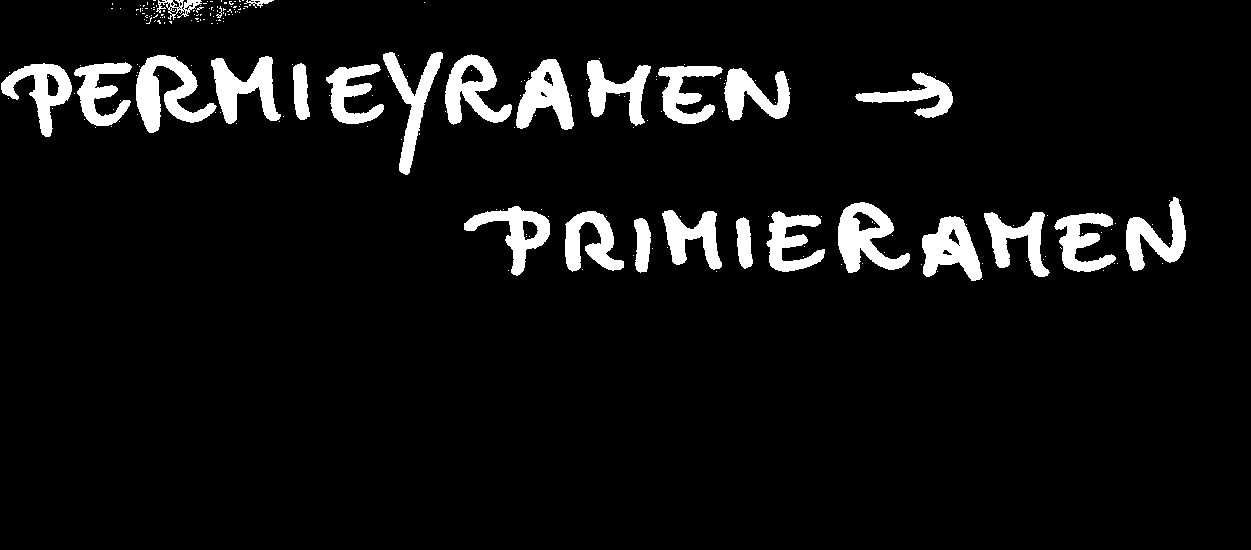 PERMIEYRAMEN →
PRIMIERAMEN